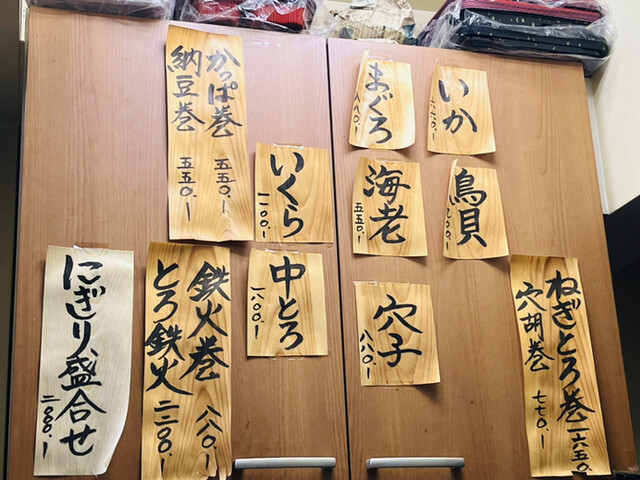 いか
六六〇.-
まぐろ
八八〇.-
鳥貝
海老
五五〇.-
穴子
八八〇.-
ねぎとろ巻 一六五〇.-
穴胡巻 七七〇.-
かっぱ巻 五五〇.-
納豆巻 五五〇.-
いくら
一一〇〇.-
中とろ
一八〇〇.-
鉄火巻 八八〇.-
とろ鉄火 二二〇〇.-
にぎり盛合せ
二〇〇〇.-